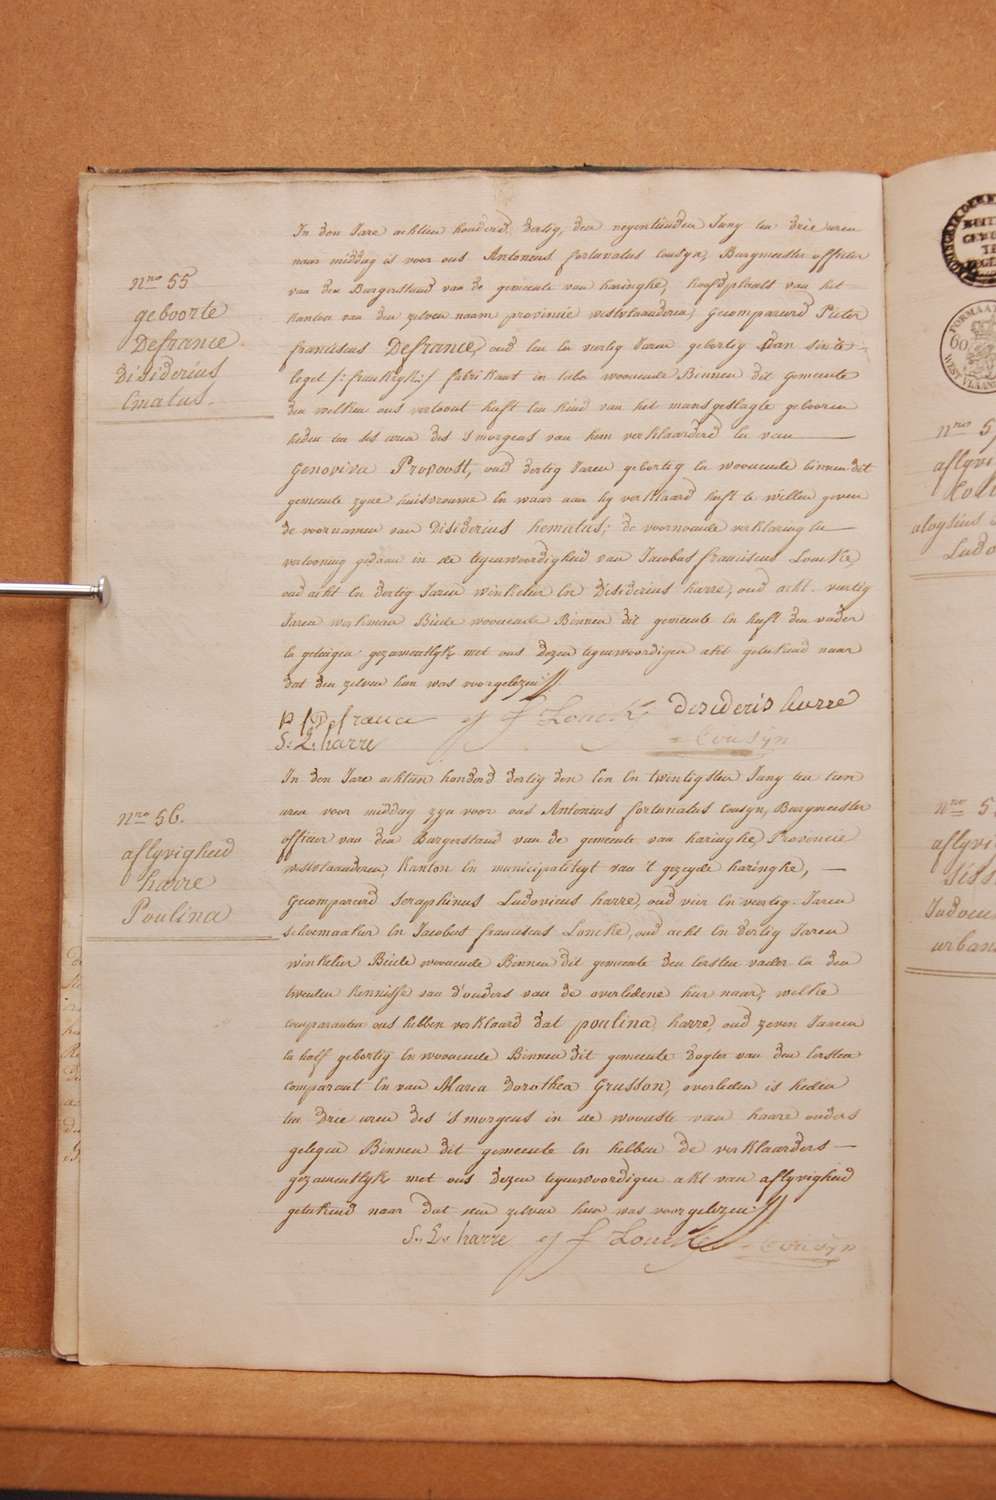 Nro 55
geboorte
Defrance
Disiderius
Ematus.
In den Jare achtien honderd dertig, den negentienden Juny ten drie uren
naar middag is voor ons Antoneus fortunatus Cousyn, Burgmeester officier
van den Burgerstand van de gemeente van haringhe, hoofdplaats van het
kanton van den zelven naam provincie westvlaanderen, Gecompareerd Pieter
franciscus Defrance, oud een en veertig Jaren gebortig van
/: frankryk :/ fabrikant in woonende Binnen dit Gemeente
den welken ons vertoont heeft een kind van het mans geslagte gebooren
heden ten ses uren des s'morgens van hem verklaarder en van
Genoviva Provoost, oud dertig Jaren gebortig en woonende binnen dit
gemeente zyne huisvrouwe en waar aan hy verklaard heeft te willen geven
de voornamen van Disiderius hematus; de voornoemde verklaring en
vertooning gedaan in de tegenwoordigheid van Jacobus franciscus Loncke
oud acht en dertig Jaren winkelier en Disiderius harre, oud acht veertig
Jaren werkman Beide woonende Binnen dit gemeente en heeft den vader
en getuigen gezamentlyk met ons dezen tegenwoordigen akt geteekend naar
dat den zelven hun was voorgelezen //
p f Defrance J f Lonck desideris harre
S. L. harre Cousyn
Nro 56.
aflyvigheid
harre
Poulina
In den Jare achtien honderd dertig den een en twintigsten Juny ten tien
uren voor middag zyn voor ons Antonius fortunatus Cousyn, Burgmeester
officier van den Burgerstand van de gemeente van haringhe, Provincie
westvlaanderen, Kanton en municipaliteyt van 't gezeyde haringhe,
Gecompareerd Seraphinus Ludovicus harre, oud vier en veertig Jaren
schoemaaker en Jacobus franciscus Loncke, oud acht en dertig Jaren
winkelier Beide woonende Binnen dit gemeente den eersten vader en den
tweeden kennisse van d'ouders van de overledene hier naar, welke
comparanten ons hebben verklaard dat poulina harre, oud zeven Jaaren
en half gebortig en woonende Binnen dit gemeente dogter van den eersten
comparant en van Maria Dorothea Grusson, overleden is heden
ten drie uren des 's morgens in de woonste van haare ouders
gelegen Binnen dit gemeente en hebben de verklaarders
gezamentlyk met ons dezen tegenwoordigen akt van aflyvigheid
geteekend naar dat den zelven hun was voorgelezen //
S. L. harre J f Loncke Cousyn
60